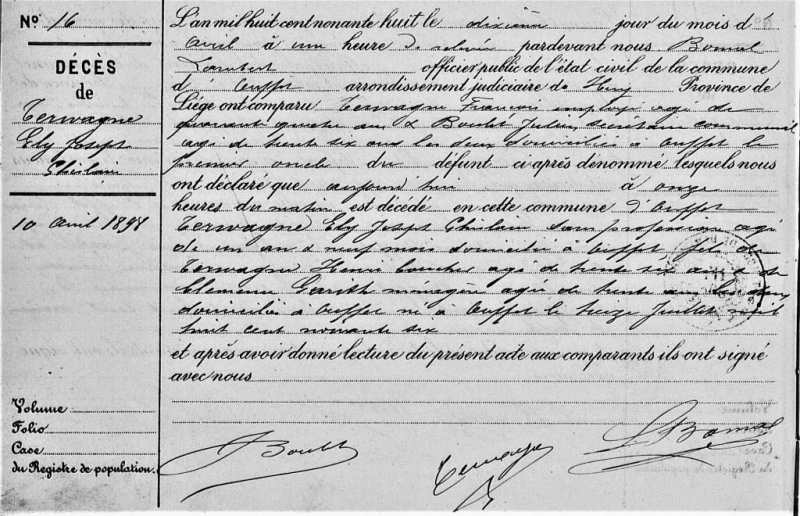 N° 16
DÉCÈS
de
Terwagne
Ely Joseph
Ghilain
10 avril 1898
Volume
Folio
Case
du Registre de population.
L'an mil huit cent nonante huit le dixième jour du mois d'
avril à une heure de relevée pardevant nous Bomal
Lambert officier public de l'état civil de la commune
d'Ouffet arrondissement judiciaire de Huy Province de
Liége ont comparu Terwagne François employé agé de
quarante quatre ans & Boulet Julien, secrétaire communal
agé de trente six ans les deux domiciliés à Ouffet le
premier oncle du défunt ci-après dénommé lesquels nous
ont déclaré que aujourd'hui à onze
heures du matin est décédé en cette commune d'Ouffet
Terwagne Ely Joseph Ghilain sans profession agé
de un an & neuf mois domicilié à Ouffet fils de
Terwagne Henri boucher agé de trente six ans & de
Clémence ménagère agée de trente ans les deux
domiciliés à Ouffet né à Ouffet le treize Juillet mil
huit cent nonante six
et après avoir donné lecture du présent acte aux comparants ils ont signé
avec nous
Boulet
Terwagne
L Bomal